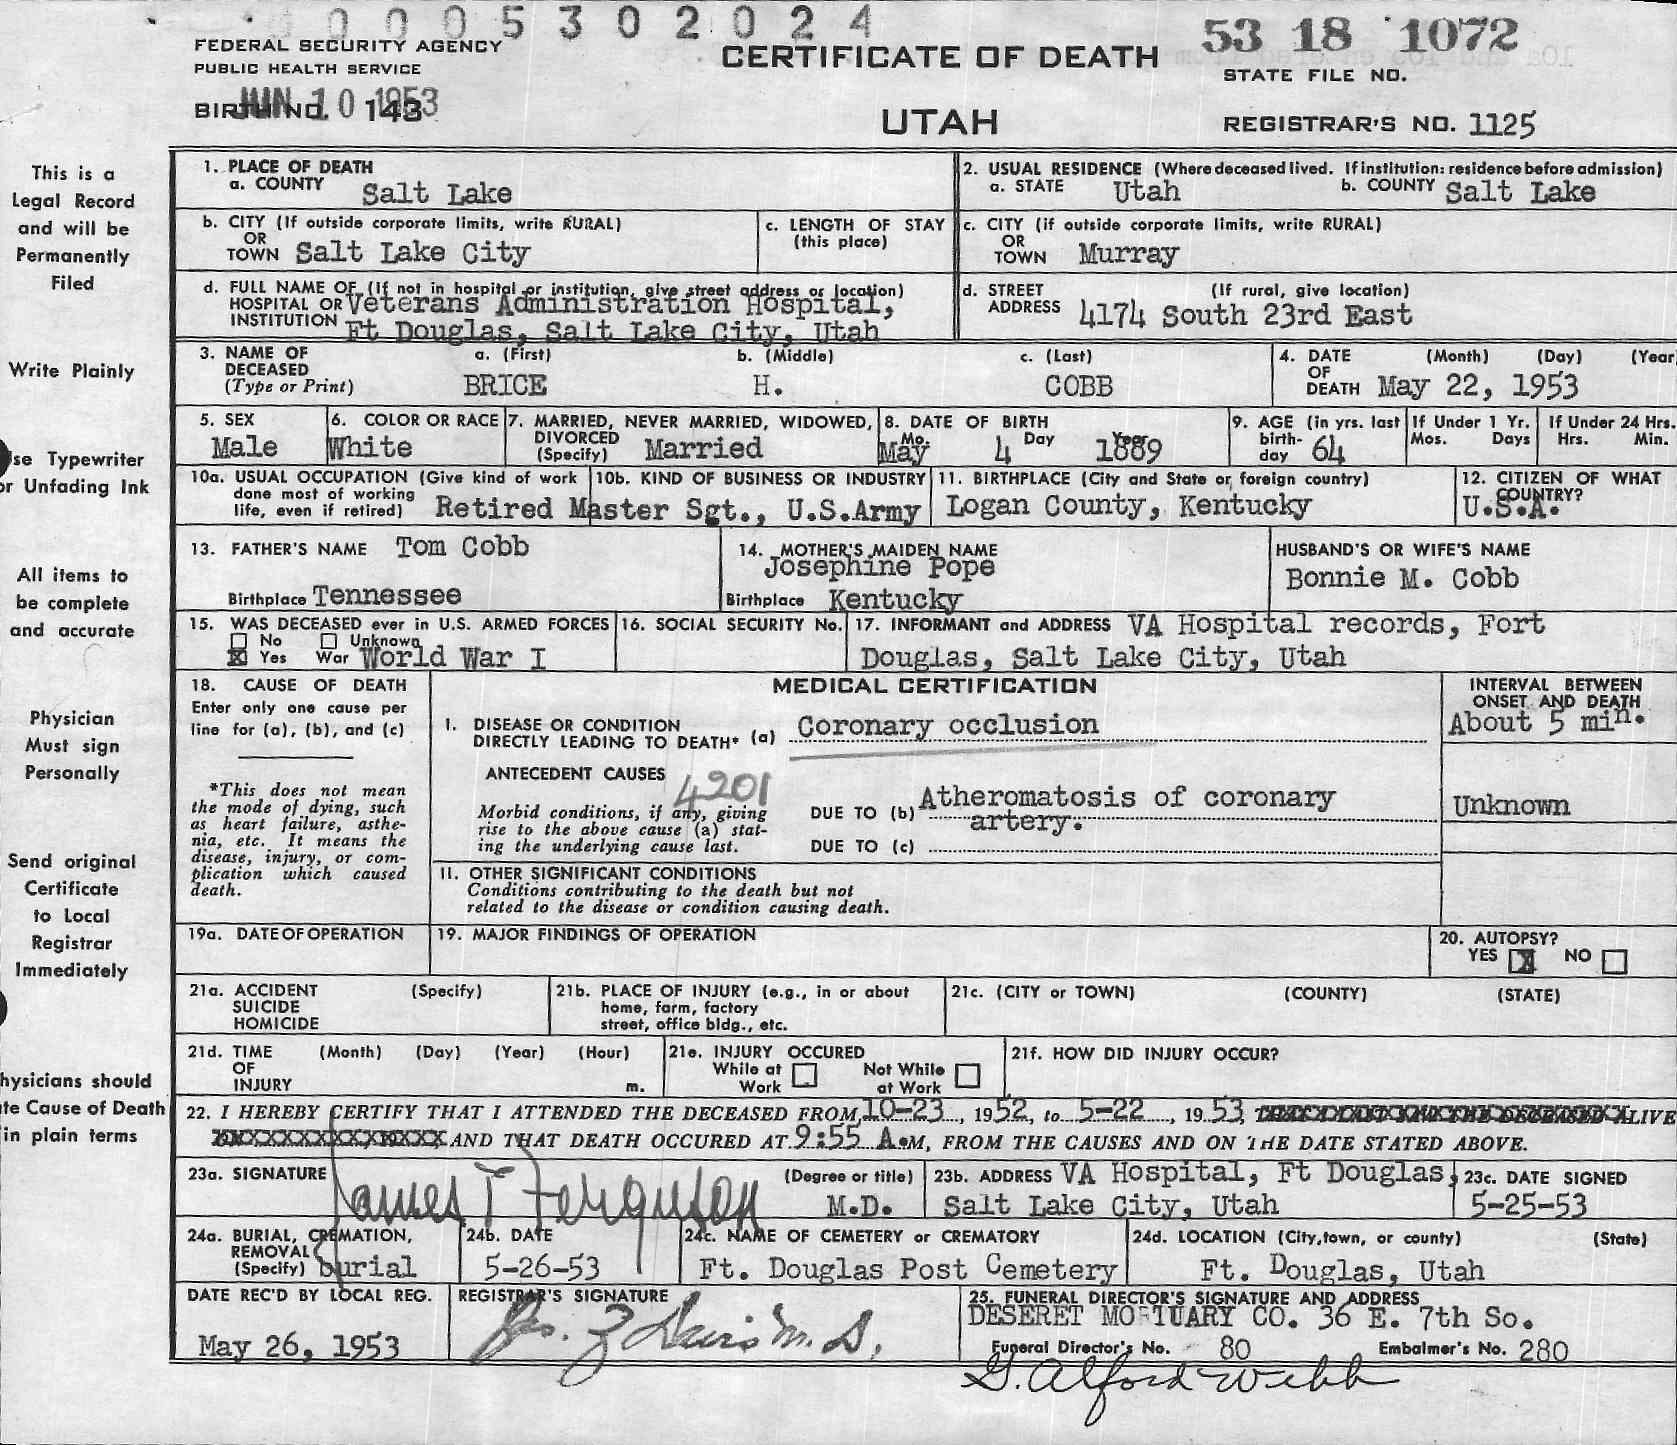 0 0 0 5 3 0 2 0 2 4
FEDERAL SECURITY AGENCY
PUBLIC HEALTH SERVICE
BIRTH NO. 143
JUN 10 1953
CERTIFICATE OF DEATH
UTAH
53 18 1072
STATE FILE NO.
REGISTRAR'S NO. 1125
This is a
Legal Record
and will be
Permanently
Filed
Write Plainly
se Typewriter
or Unfading Ink
All items to
be complete
and accurate
Physician
Must sign
Personally
Send original
Certificate
to Local
Registrar
Immediately
hysicians should
te Cause of Death
in plain terms
1. PLACE OF DEATH
a. COUNTY Salt Lake
2. USUAL RESIDENCE (Where deceased lived. If institution: residence before admission)
a. STATE Utah b. COUNTY Salt Lake
b. CITY (If outside corporate limits, write RURAL)
OR
TOWN Salt Lake City
c. LENGTH OF STAY
(this place)
c. CITY (if outside corporate limits, write RURAL)
OR
TOWN Murray
d. FULL NAME OF (If not in hospital or institution, give street address or location)
HOSPITAL OR Veterans Administration Hospital,
INSTITUTION Ft Douglas, Salt Lake City, Utah
d. STREET (If rural, give location)
ADDRESS 4174 South 23rd East
3. NAME OF DECEASED (Type or Print)
a. (First) b. (Middle) c. (Last)
BRICE H. COBB
4. DATE (Month) (Day) (Year
OF
DEATH May 22, 1953
5. SEX
Male
6. COLOR OR RACE
White
7. MARRIED, NEVER MARRIED, WIDOWED,
DIVORCED
(Specify) Married
8. DATE OF BIRTH
Mo. Day Year
May 4 1889
9. AGE (in yrs. last
birth-
day 64
If Under 1 Yr.
Mos. Days
If Under 24 Hrs.
Hrs. Min.
10a. USUAL OCCUPATION (Give kind of work
done most of working
life, even if retired) Retired Master Sgt., U.S.Army
10b. KIND OF BUSINESS OR INDUSTRY
11. BIRTHPLACE (City and State or foreign country)
Logan County, Kentucky
12. CITIZEN OF WHAT
COUNTRY?
U.S.A.
13. FATHER'S NAME Tom Cobb
Birthplace Tennessee
14. MOTHER'S MAIDEN NAME
Josephine Pope
Birthplace Kentucky
HUSBAND'S OR WIFE'S NAME
Bonnie M. Cobb
15. WAS DECEASED ever in U.S. ARMED FORCES
No Unknown
X Yes War World War I
16. SOCIAL SECURITY No.
17. INFORMANT and ADDRESS VA Hospital records, Fort
Douglas, Salt Lake City, Utah
18. CAUSE OF DEATH
Enter only one cause per
line for (a), (b), and (c)
*This does not mean
the mode of dying, such
as heart failure, asthe-
nia, etc. It means the
disease, injury, or com-
plication which caused
death.
MEDICAL CERTIFICATION
I. DISEASE OR CONDITION
DIRECTLY LEADING TO DEATH* (a) Coronary occlusion
ANTECEDENT CAUSES
4201
Morbid conditions, if any, giving
rise to the above cause (a) stat-
ing the underlying cause last.
DUE TO (b) Atheromatosis of coronary
artery.
DUE TO (c)
11. OTHER SIGNIFICANT CONDITIONS
Conditions contributing to the death but not
related to the disease or condition causing death.
INTERVAL BETWEEN
ONSET AND DEATH
About 5 min.
Unknown
19a. DATE OF OPERATION
19. MAJOR FINDINGS OF OPERATION
20. AUTOPSY?
YES X NO
21a. ACCIDENT (Specify)
SUICIDE
HOMICIDE
21b. PLACE OF INJURY (e.g., in or about
home, farm, factory
street, office bldg., etc.
21c. (CITY or TOWN) (COUNTY) (STATE)
21d. TIME (Month) (Day) (Year) (Hour)
OF
INJURY m.
21e. INJURY OCCURED
While at Work Not While at Work
21f. HOW DID INJURY OCCUR?
22. I HEREBY CERTIFY THAT I ATTENDED THE DECEASED FROM, 10-23, 1952, to 5-22, 1953, ALIVE
AND THAT DEATH OCCURED AT 9:55 A.M, FROM THE CAUSES AND ON THE DATE STATED ABOVE.
23a. SIGNATURE James T Ferguson (Degree or title)
M.D.
23b. ADDRESS VA Hospital, Ft Douglas,
Salt Lake City, Utah
23c. DATE SIGNED
5-25-53
24a. BURIAL, CREMATION,
REMOVAL
(Specify) burial
24b. DATE
5-26-53
24c. NAME OF CEMETERY or CREMATORY
Ft. Douglas Post Cemetery
24d. LOCATION (City, town, or county) (State)
Ft. Douglas, Utah
DATE REC'D BY LOCAL REG.
May 26, 1953
REGISTRAR'S SIGNATURE
Davis M.D.
25. FUNERAL DIRECTOR'S SIGNATURE AND ADDRESS
DESERET MORTUARY CO. 36 E. 7th So.
Funeral Director's No. 80 Embalmer's No. 280
G. Alford Webb